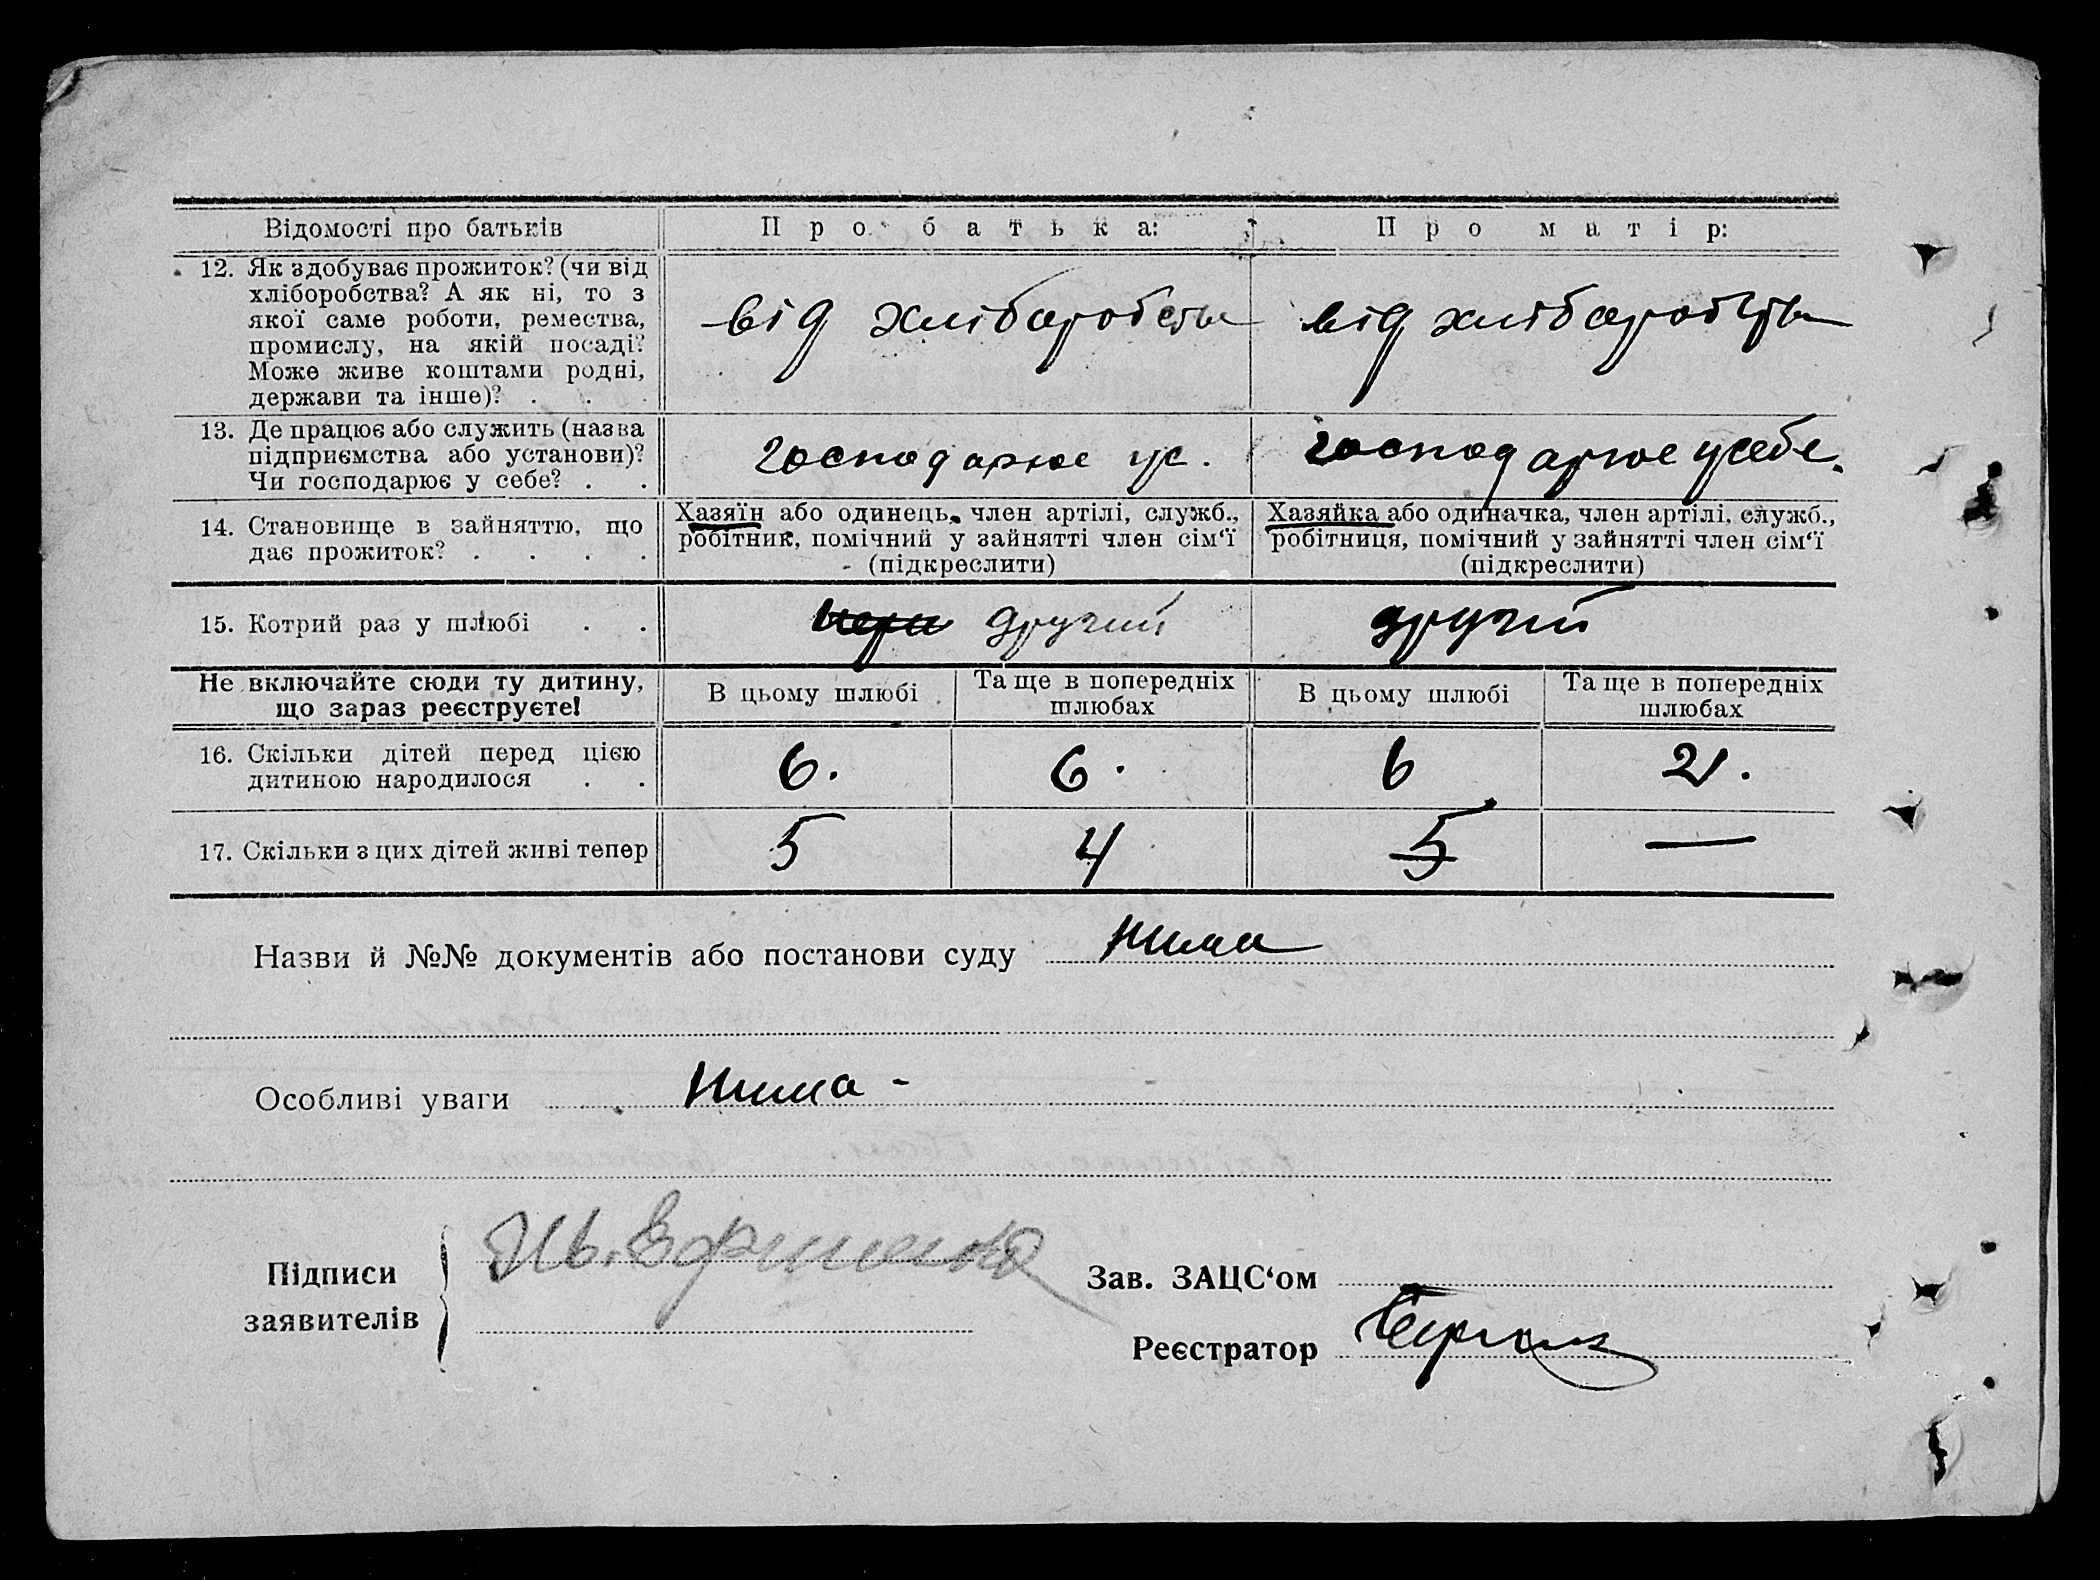 Відомості про батьків Про батька: Про матір:
12. Як здобуває прожиток? (чи від
хліборобства? А як ні, то з
якої саме роботи, ремества,
промислу, на якій посаді?
Може живе коштами родні,
держави та інше)? . . .
від хліборобства від хліборобства
13. Де працює або служить (назва
підприємства або установи)?
Чи господарює у себе? . .
господарює ус. господарює у себе.
14. Становище в зайняттю, що
дає прожиток? . . . .
Хазяїн або одинець, член артілі, служб.,
робітник, помічний у зайнятті член сім‘ї
(підкреслити)
Хазяйка або одиначка, член артілі, служб.,
робітниця, помічний у зайнятті член сім‘ї
(підкреслити)
15. Котрий раз у шлюбі . . другий другий
Не включайте сюди ту дитину,
що зараз реєструєте!
В цьому шлюбі Та ще в попередніх
шлюбах
В цьому шлюбі Та ще в попередніх
шлюбах
16. Скільки дітей перед цією
дитиною народилося . .
6. 6. 6 2.
17. Скільки з цих дітей живі тепер 5 4 5 —
Назви й №№ документів або постанови суду нима
Особливі уваги нима -
Підписи
заявителів
Зав. ЗАЦС‘ом
Реєстратор